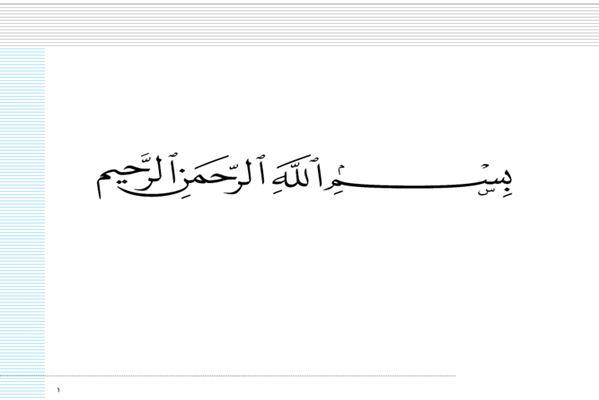 بِسْمِ ٱللَّهِ ٱلرَّحْمَنِ ٱلرَّحِيمِ
١